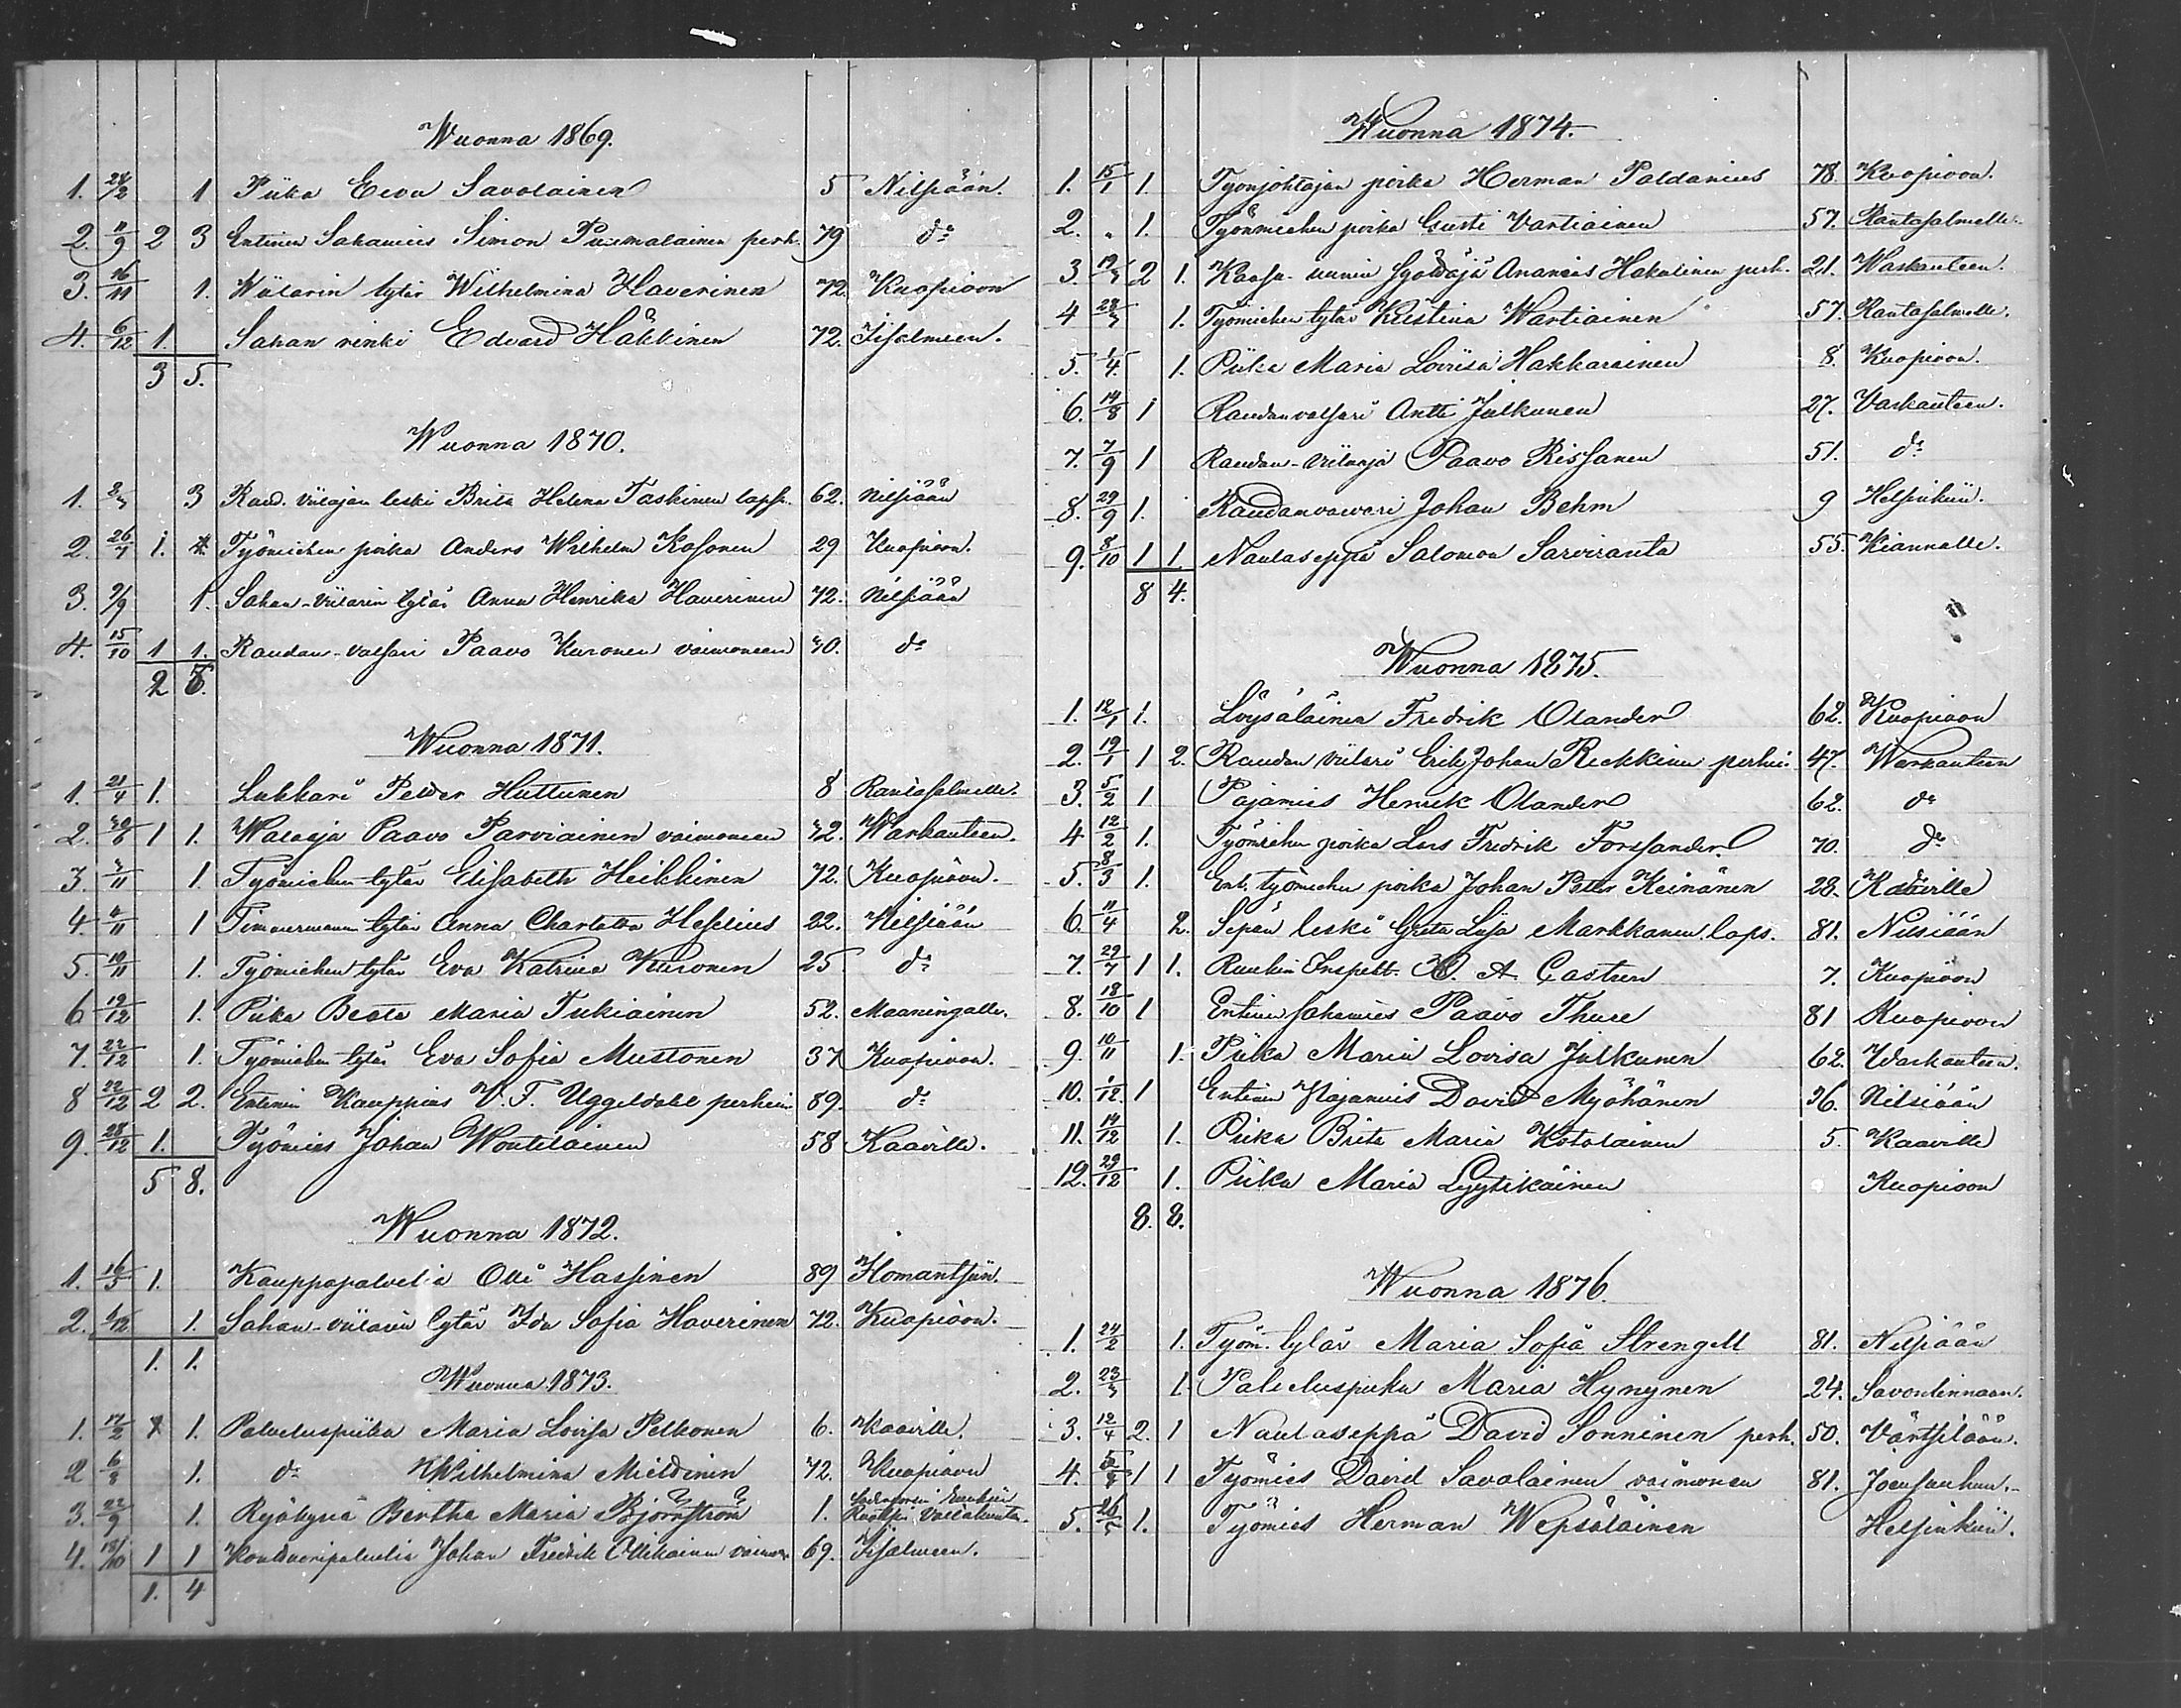 Wuonna 1869.
1. 24/2 1 Piika Eeva Savolainen 5 Nilsiään.
2. 11/9 2 3 Entinen Sahamies Simon Puumalainen perh. 79 do
3. 16/11 1. Wiilarin tytär Wilhelmina Haverinen 72. Kuopioon
4. 6/12 1. Sahan renki Edvard Häkkinen 72. Iisalmeen.
3 5.
Wuonna 1870.
1. 8/3 3 Raud. viilajan leski Brita Helena Taskinen laps. 62. Nilsiään
2. 26/7 1. Työmiehen poika Anders Wilhelm Kosonen 29 Kuopioon.
3. 9/9 1. Sahan-viilarin tytär Anna Henrika Haverinen 72. Nilsiään
4. 15/10 1 1. Raudan-valsari Paavo Kuronen vaimoneen 30. do
2 5.
Wuonna 1871.
1. 21/4 1. Lukkari Petter Huttunen 8 Rantasalmelle.
2. 30/6 1 1. Walaaja Paavo Parviainen vaimoneen 32. Warkauteen.
3. 3/11 1. Työmiehen tytär Elisabeth Heikkinen 72. Kuopioon.
4. 4/11 1 Timmermannin tytär Anna Charlotta Heselius 22. Nilsiään
5. 10/11 1. Työmiehen tytär Eva Katrina Kuronen 25 do
6 12/12 1. Piika Beata Maria Tukiainen 52. Maaningalle.
7. 22/12 1. Työmiehen tytär Eva Sofia Mustonen 37 Kuopioon.
8 22/12 2 2. Entinen Kauppias V. F. Uggeldahl perhein. 89. do
9. 28/12 1. Työmies Johan Wontelainen 58 Kaaville.
5 8.
Wuonna 1872.
1. 16/5 1. Kauppapalvelia Olli Hassinen 89 Ilomantsiin.
2. 6/12 1. Sahan-viilarin tytär Ida Sofia Haverinen 72. Kuopioon.
1. 1.
Wuonna 1873.
1. 17/2 1. Palveluspiika Maria Lovisa Pelkonen 6. Kaaville.
2 6/8 1. do Wilhelmina Mieldinen 72. Kuopioon
3. 22/9 1. Ryökynä Bertha Maria Björnström 1.
4. 18/10 1 1 Konttooripalvelia Johan Fredrik Ollikainen vaimon. 69. Iisalmeen.
1. 4
Wuonna 1874.
1. 15/1 1. Työnjohtajan poika Herman Paldanius 78. Kuopioon.
2. " 1. Työnmiehen poika Gusti Vartiainen 57. Rantasalmelle.
3. 19/3 2 1. Kaasu-uunin Ananias Hakulinen perh. 21. Warkauteen.
4 28/3 1. Työmiehen tytär Kristina Wartiainen 57. Rantasalmelle.
5. 1/4. 1. Piika Maria Loviisa Hakkarainen 8. Kuopioon.
6. 14/8 1 Raudanvalsari Antti Julkunen 27. Varkauteen.
7. 7/9 1 Raudan-viilaaja Paavo Rissanen 51. do
8. 29/9 1. Raudanvasari Johan Behm 9 Helsinkiin.
9. 8/10 1 1. Naulaseppä Salomon Sarviranta 55. Kiannalle.
8 4.
Wuonna 1875.
1. 12/1 1. Löysäläinen Fredrik Olander 62. Kuopioon
2. 19/1 1 2. Raudan viilari Erik Johan Riekkinen perhei. 47. Warkauteen
3. 5/2 1 Pajamies Henrik Olander 62. do
4 12/2 1. Työmiehen poika Lars Fredrik Forssander 70. do
5. 8/3 1. Ent. työmiehen poika Johan Petter Keinänen 28. Kaaville
6. 11/4 2. Sepän leski Greta Liisa Markkanen laps. 81. Nilsiään
7. 29/7 1 1. Ruukin Inspekt. O. A. Castren 7. Kuopioon
8. 18/10 1 Entinen sahamies Paavo Thure 81 Kuopioon
9. 10/11 1. Piika Maria Lovisa Julkunen 62. Warkauteen.
10. 1/12. 1 Entinen Pajamies David Myöhänen 36. Nilsiään
11. 14/12 1. Piika Brita Maria Kotolainen 5. Kaaville
12. 29/12 1. Piika Maria Lyytikäinen Kuopioon
8. 8.
Wuonna 1876.
1. 24/2 1. Työm. tytär Maria Sofia Strengell 81. Nilsiään
2. 23/3 1. Palveluspiika Maria Hynynen 24. Savonlinnaan.
3. 12/4 2. 1 Naulaseppä David Sonninen perh. 50. Värtsilään.
4. 1 1 Työmies David Savolainen vaimonen 81. Joensuuhun.
5. 26/5 1. Työmies Herman Wepsäläinen Helsinkiin.